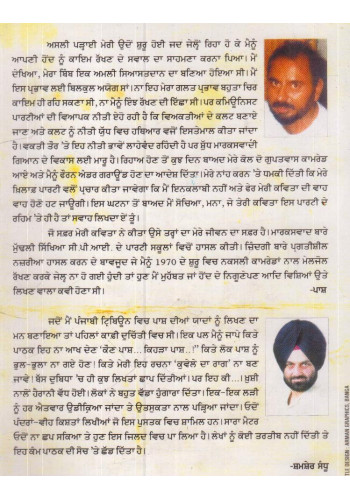 ਅਸਲੀ ਪੜ੍ਹਾਈ ਮੇਰੀ ਉਦੋਂ ਸ਼ੁਰੂ ਹੋਈ ਜਦ ਜੇਲ੍ਹੋਂ ਰਿਹਾ ਹੋ ਕੇ ਮੈਨੂੰ
ਆਪਣੀ ਹੋਂਦ ਨੂੰ ਕਾਇਮ ਰੱਖਣ ਦੇ ਸਵਾਲ ਦਾ ਸਾਹਮਣਾ ਕਰਨਾ ਪਿਆ। ਮੈਂ
ਦੇਖਿਆ, ਮੇਰਾ ਬਿੰਬ ਇਕ ਅਮਲੀ ਸਿਆਸਤਦਾਨ ਦਾ ਬਣਿਆ ਹੋਇਆ ਸੀ। ਮੈਂ
ਇਸ ਪ੍ਰਭਾਵ ਲਈ ਬਿਲਕੁਲ ਅਯੋਗ ਸਾਂ। ਨਾ ਇਹ ਮੇਰਾ ਗਲਤ ਪ੍ਰਭਾਵ ਬਹੁਤਾ ਚਿਰ
ਕਾਇਮ ਹੀ ਰਹਿ ਸਕਣਾ ਸੀ, ਨਾ ਮੈਨੂੰ ਇੰਝ ਰੱਖਣ ਦੀ ਇੱਛਾ ਸੀ। ਪਰ ਕਮਿਊਨਿਸਟ
ਪਾਰਟੀਆਂ ਦੀ ਵਿਆਪਕ ਨੀਤੀ ਏਹੋ ਰਹੀ ਹੈ ਕਿ ਵਿਅਕਤੀਆਂ ਦੇ ਕਲਟ ਬਣਾਏ
ਜਾਣ ਅਤੇ ਕਲਟ ਨੂੰ ਨੀਤੀ ਯੁੱਧ ਵਿਚ ਹਥਿਆਰ ਵਜੋਂ ਇਸਤੇਮਾਲ ਕੀਤਾ ਜਾਂਦਾ
ਹੈ। ਵਕਤੀ ਤੌਰ 'ਤੇ ਇਹ ਨੀਤੀ ਭਾਵੇਂ ਲਾਹੇਵੰਦ ਰਹਿੰਦੀ ਹੈ ਪਰ ਸ਼ੁੱਧ ਮਾਰਕਸਵਾਦੀ
ਗਿਆਨ ਦੇ ਵਿਕਾਸ ਲਈ ਮਾਰੂ ਹੈ। ਰਿਹਾਅ ਹੋਣ ਤੋਂ ਕੁਝ ਦਿਨ ਬਾਅਦ ਮੇਰੇ ਕੋਲ ਦੋ ਗੁਪਤਵਾਸ ਕਾਮਰੇਡ
ਆਏ ਅਤੇ ਮੈਨੂੰ ਫੌਰਨ ਅੰਡਰ ਗਰਾਊਂਡ ਹੋਣ ਦਾ ਆਦੇਸ਼ ਦਿੱਤਾ। ਮੇਰੇ ਨਾਂਹ ਕਰਨ 'ਤੇ ਧਮਕੀ ਦਿੱਤੀ ਕਿ ਮੇਰੇ
ਖ਼ਿਲਾਫ਼ ਪਾਰਟੀ ਵਲੋਂ ਪ੍ਰਚਾਰ ਕੀਤਾ ਜਾਵੇਗਾ ਕਿ ਮੈਂ ਇਨਕਲਾਬੀ ਨਹੀਂ ਅਤੇ ਫੇਰ ਮੇਰੀ ਕਵਿਤਾ ਦੀ ਵਾਹ
ਵਾਹ ਹੋਣੋਂ ਹਟ ਜਾਊਗੀ। ਇਸ ਘਟਨਾ ਤੋਂ ਬਾਅਦ ਮੈਂ ਸੋਚਿਆ, ਮਨਾ, ਜੇ ਤੇਰੀ ਕਵਿਤਾ ਇਸ ਪਾਰਟੀ ਦੇ
ਰਹਿਮ 'ਤੇ ਹੀ ਹੈ ਤਾਂ ਸਵਾਹ ਲਿਖਦਾ ਏਂ ਤੂੰ।
ਜੋ ਸਫ਼ਰ ਮੇਰੀ ਕਵਿਤਾ ਨੇ ਕੀਤਾ ਉਸੇ ਤਰ੍ਹਾਂ ਦਾ ਮੇਰੇ ਜੀਵਨ ਦਾ ਸਫ਼ਰ ਹੈ। ਮਾਰਕਸਵਾਦ ਬਾਰੇ
ਮੁੱਢਲੀ ਸਿੱਖਿਆ ਸੀ.ਪੀ.ਆਈ. ਦੇ ਪਾਰਟੀ ਸਕੂਲਾਂ ਵਿਚੋਂ ਹਾਸਲ ਕੀਤੀ। ਜ਼ਿੰਦਗੀ ਬਾਰੇ ਪ੍ਰਗਤੀਸ਼ੀਲ
ਨਜ਼ਰੀਆ ਹਾਸਲ ਕਰਨ ਦੇ ਬਾਵਜੂਦ ਜੇ ਮੈਨੂੰ 1970 ਦੇ ਸ਼ੁਰੂ ਵਿਚ ਨਕਸਲੀ ਕਾਮਰੇਡਾਂ ਨਾਲ ਮੇਲਜੋਲ
ਰੱਖਣ ਕਰਕੇ ਜੇਲ੍ਹ ਨਾ ਹੋ ਗਈ ਹੁੰਦੀ ਤਾਂ ਹੁਣ ਮੈਂ ਮੁਹੱਬਤ ਜਾਂ ਹੋਂਦ ਦੇ ਨਿਗੂਣੇਪਣ ਆਦਿ ਵਿਸ਼ਿਆਂ ਉੱਤੇ
ਲਿਖਣ ਵਾਲਾ ਕਵੀ ਹੋਣਾ ਸੀ।
-ਪਾਸ਼
ਜਦੋਂ ਮੈਂ ਪੰਜਾਬੀ ਟ੍ਰਿਬਿਊਨ ਵਿਚ ਪਾਸ਼ ਦੀਆਂ ਯਾਦਾਂ ਨੂੰ ਲਿਖਣ ਦਾ
ਮਨ ਬਣਾਇਆ ਤਾਂ ਪਹਿਲਾਂ ਕਾਫ਼ੀ ਦੁਚਿੱਤੀ ਵਿਚ ਸੀ। ਇਕ ਪਲ ਮੈਨੂੰ ਜਾਪੇ ਕਿਤੇ
ਪਾਠਕ ਇਹ ਨਾ ਆਖ ਦੇਣ 'ਕੌਣ ਪਾਸ਼... ਕਿਹੜਾ ਪਾਸ਼..!' ਕਿਤੇ ਲੋਕ ਪਾਸ਼ ਨੂੰ
ਭੁਲ-ਭੁਲਾ ਨਾ ਗਏ ਹੋਣ! ਕਿਤੇ ਮੇਰੀ ਇਹ ਰਚਨਾ 'ਕੁਵੇਲੇ ਦਾ ਰਾਗ' ਨਾ ਬਣ
ਜਾਵੇ। ਬੱਸ ਦੁਬਿਧਾ 'ਚ ਹੀ ਕੁਝ ਲਿਖਤਾਂ ਛਾਪ ਦਿੱਤੀਆਂ। ਪਰ ਇਹ ਕੀ...! ਖ਼ੁਸ਼ੀ
ਨਾਲੋਂ ਹੈਰਾਨੀ ਵੱਧ ਹੋਈ। ਲੋਕਾਂ ਨੇ ਬਹੁਤ ਵੱਡਾ ਹੁੰਗਾਰਾ ਦਿੱਤਾ। ਇਕ-ਇਕ ਲੜੀ
ਨੂੰ ਹਰ ਐਤਵਾਰ ਉਡੀਕਿਆ ਜਾਂਦਾ ਤੇ ਉਤਸੁਕਤਾ ਨਾਲ ਪੜ੍ਹਿਆ ਜਾਂਦਾ। ਓਦੋਂ
ਪੰਦਰਾਂ-ਵੀਹ ਕਿਸ਼ਤਾਂ ਲਿਖੀਆਂ ਜੋ ਇਸ ਪੁਸਤਕ ਵਿਚ ਸ਼ਾਮਿਲ ਹਨ। ਸਾਰਾ ਮੈਟਰ
ਓਦੋਂ ਨਾ ਛਪ ਸਕਿਆ ਤੇ ਹੁਣ ਇਸ ਜਿਲਦ ਵਿਚ ਪਾ ਲਿਆ ਹੈ। ਲੇਖਾਂ ਨੂੰ ਕੋਈ ਤਰਤੀਬ ਨਹੀਂ ਦਿੱਤੀ ਤੇ
ਇਹ ਕੰਮ ਪਾਠਕ ਦੀ ਸੋਚ 'ਤੇ ਛੱਡ ਦਿੱਤਾ ਹੈ।
-ਸ਼ਮਸ਼ੇਰ ਸੰਧੂ
TLE DESIGN : ARMAN GRAPHICS, BANGA